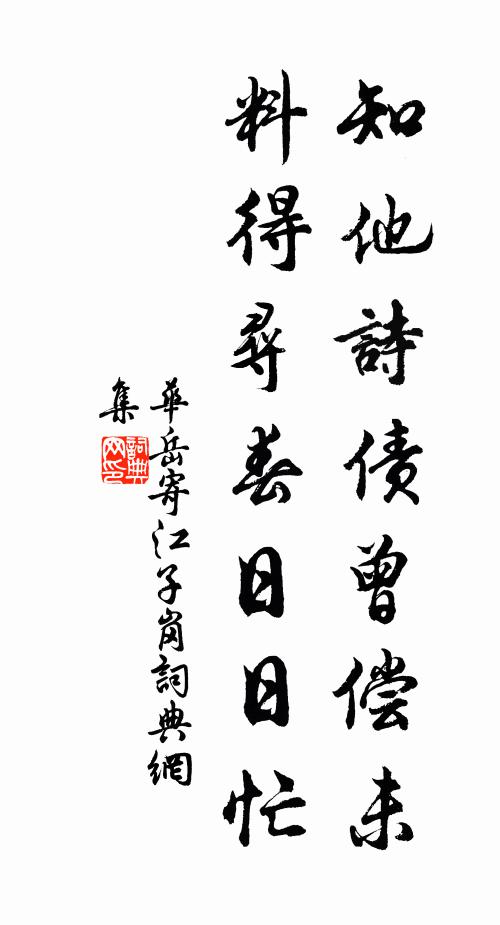 知他詩債曾偿未
料得尋春日日忙
華岳寄江子崗詞典網
集
詞典网印